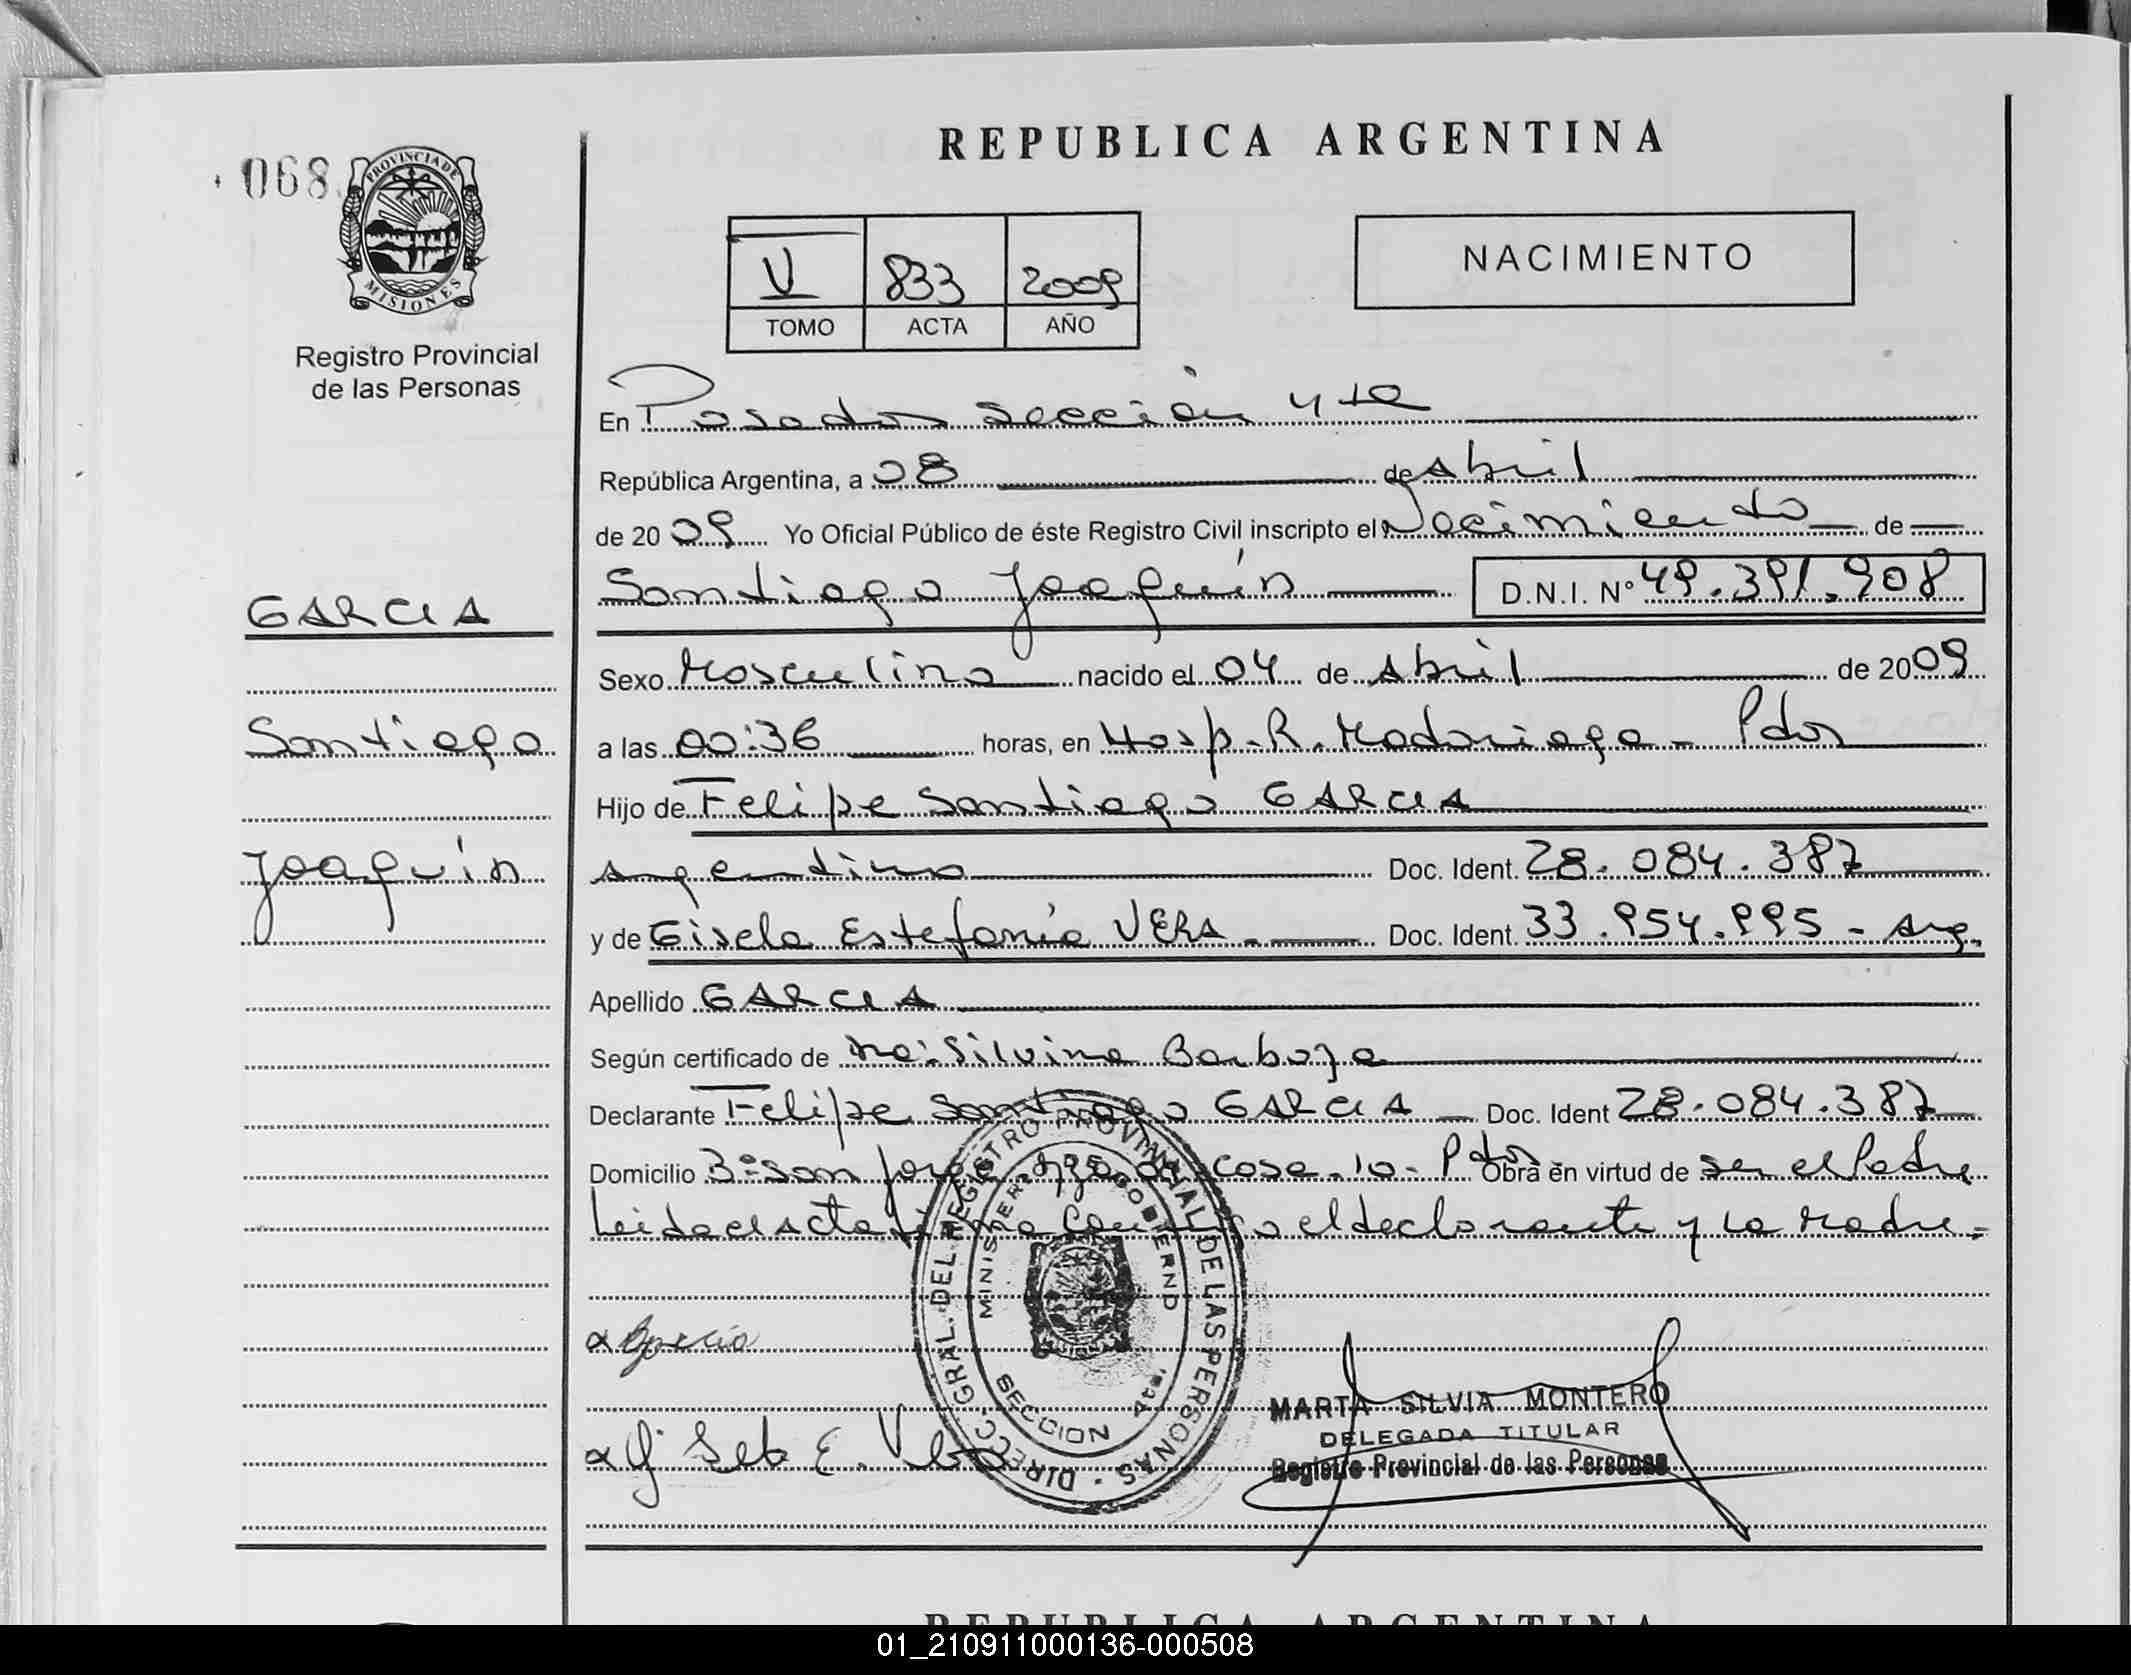 REPUBLICA ARGENTINA
068
PROVINCIA DE
MISIONES
Registro Provincial
de las Personas
V 833 2009
TOMO ACTA AÑO
NACIMIENTO
En Posadas sección 4ta
República Argentina, a 08 de Abril
de 2009 Yo Oficial Público de éste Registro Civil inscripto el Nacimiento de
Santiago Joaquín D.N.I. Nº 49.391.908
GARCIA
Santiago
Joaquín
Sexo Masculino nacido el 04 de Abril de 2009
a las 00:36 horas, en Hosp. R. Madariaga - Pdas
Hijo de Felipe Santiago GARCIA
argentino Doc. Ident. 28.084.387
y de Gisela Estefanía VERA Doc. Ident. 33.954.995 - Arg.
Apellido GARCIA
Según certificado de Silvina Barboza
Declarante Felipe Santiago GARCIA Doc. Ident 28.084.387
Domicilio casa 10 - Pdas Obra en virtud de ser el Padre
Leida el Acta firma conmigo el declarante y la Madre.
DIRECC. GRAL. DEL REGISTRO PROVINCIAL DE LAS PERSONAS
MINISTERIO DE GOBIERNO
SECCION 4ta
MARTA SILVIA MONTERO
DELEGADA TITULAR
Registro Provincial de las Personas
REPUBLICA ARGENTINA
01_210911000136-000508